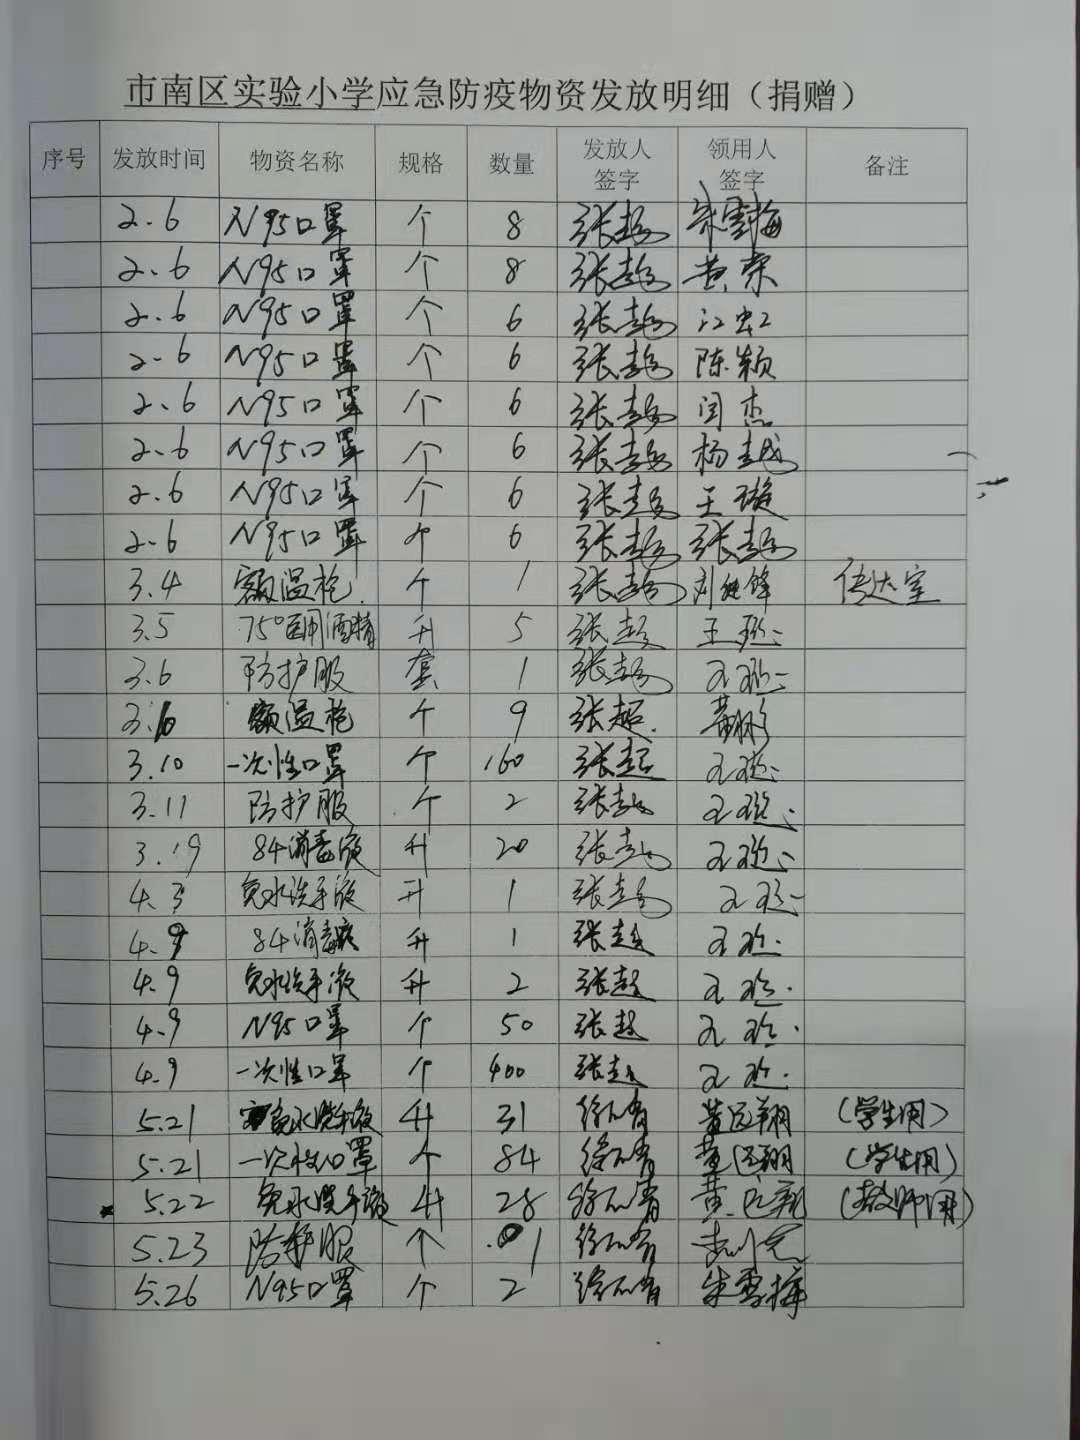 市南区实验小学应急防疫物资发放明细（捐赠）
序号 发放时间 物资名称 规格 数量 发放人签字 领用人签字 备注
2.6 N95口罩 个 8 张超 朱雪梅
2.6 N95口罩 个 8 张超 黄荣
2.6 N95口罩 个 6 张超 江虹
2.6 N95口罩 个 6 张超 陈颖
2.6 N95口罩 个 6 张超 闫杰
2.6 N95口罩 个 6 张超 杨越
2.6 N95口罩 个 6 张超 王璇
2.6 N95口罩 个 6 张超 张超
3.4 额温枪 个 1 张超 传达室
3.5 75°医用酒精 升 5 张超
3.6 防护服 套 1 张超
额温枪 个 9 张超
3.10 一次性口罩 个 160 张超
3.11 防护服 个 2 张超
3.19 84消毒液 升 20 张超
4.3 免水洗手液 升 1 张超
4.9 84消毒液 升 1 张超
4.9 免水洗手液 升 2 张超
4.9 N95口罩 个 50 张超
4.9 一次性口罩 个 400 张超
5.21 免水洗手液 升 31 黄远翔 （学生用）
5.21 一次性口罩 个 84 黄远翔 （学生用）
5.22 免水洗手液 升 28 黄远翔 （教师用）
5.23 防护服 个 1
5.26 N95口罩 个 2 朱雪梅